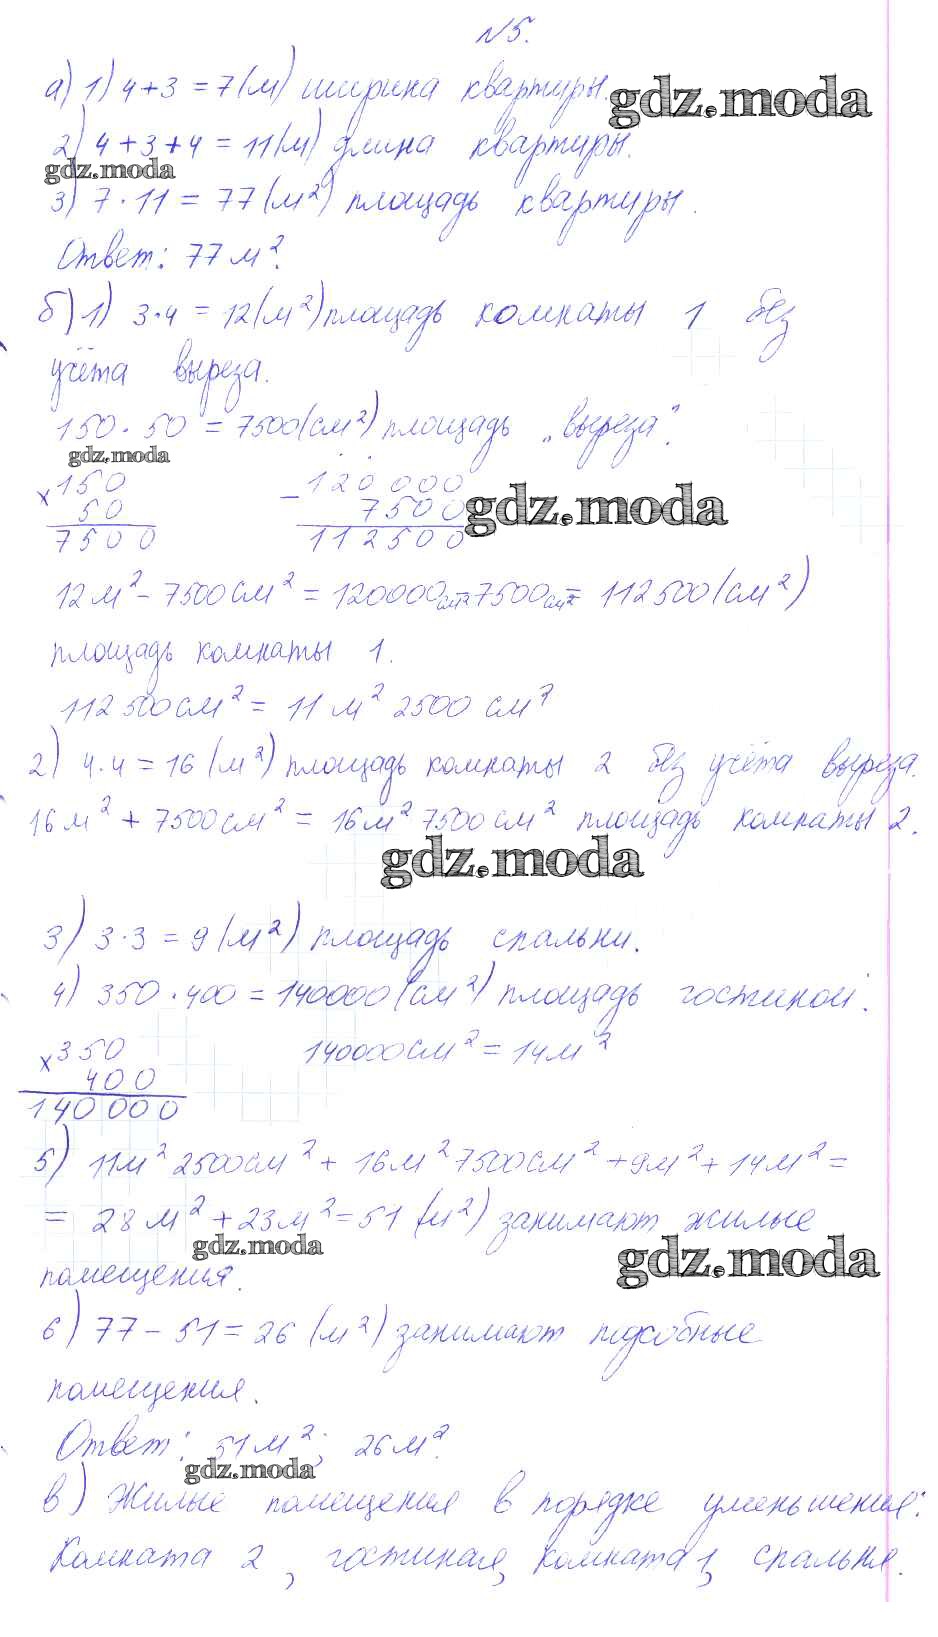 №5.
а) 1) 4+3 = 7(м) ширина квартиры.
gdz.moda
2) 4+3+4 = 11(м) длина квартиры.
gdz.moda
3) 7·11 = 77(м²) площадь квартиры.
Ответ: 77м².
б) 1) 3·4 = 12(м²) площадь комнаты 1 без
учёта выреза.
150·50 = 7500(см²) площадь „выреза".
gdz.moda
×150 −120 000
50 7500
gdz.moda
7500 112500
12м² − 7500см² = 120000см² − 7500см² = 112500(см²)
площадь комнаты 1.
112500см² = 11м² 2500 см²
2) 4·4 = 16 (м²) площадь комнаты 2 без учёта выреза.
16м² + 7500см² = 16м² 7500см² площадь комнаты 2.
gdz.moda
3) 3·3 = 9 (м²) площадь спальни.
4) 350·400 = 140000(см²) площадь гостиной.
×350 140000см² = 14м²
400
140000
5) 11м² 2500см² + 16м² 7500см² + 9м² + 14м² =
= 28м² + 23м² = 51 (м²) занимают жилые
gdz.moda
gdz.moda
помещения.
6) 77 − 51 = 26 (м²) занимают подсобные
помещения.
Ответ: 51м²; 26м².
gdz.moda
в) Жилые помещения в порядке уменьшения:
Комната 2, гостиная, комната 1, спальня.